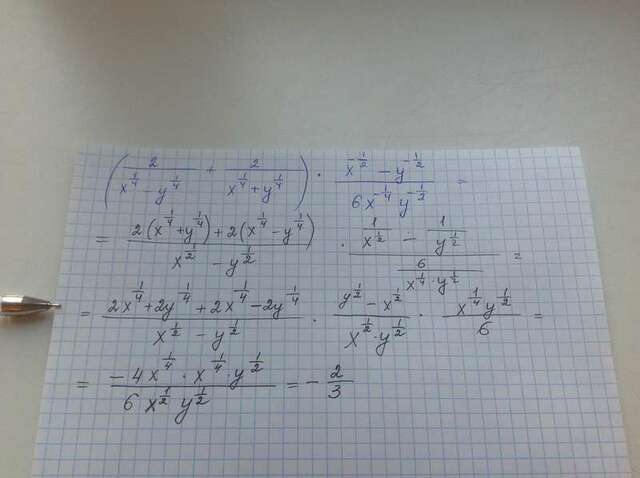 (2/(x^(1/4) - y^(1/4)) + 2/(x^(1/4) + y^(1/4))) · (x^(-1/2) - y^(-1/2))/(6x^(-1/4) y^(-1/2)) =
= (2(x^(1/4) + y^(1/4)) + 2(x^(1/4) - y^(1/4)))/(x^(1/2) - y^(1/2)) · (1/x^(1/2) - 1/y^(1/2))/(6/(x^(1/4) · y^(1/2))) =
= (2x^(1/4) + 2y^(1/4) + 2x^(1/4) - 2y^(1/4))/(x^(1/2) - y^(1/2)) · (y^(1/2) - x^(1/2))/(x^(1/2) · y^(1/2)) · (x^(1/4) y^(1/2))/6 =
= (-4x^(1/4) · x^(1/4) · y^(1/2))/(6x^(1/2) y^(1/2)) = -2/3